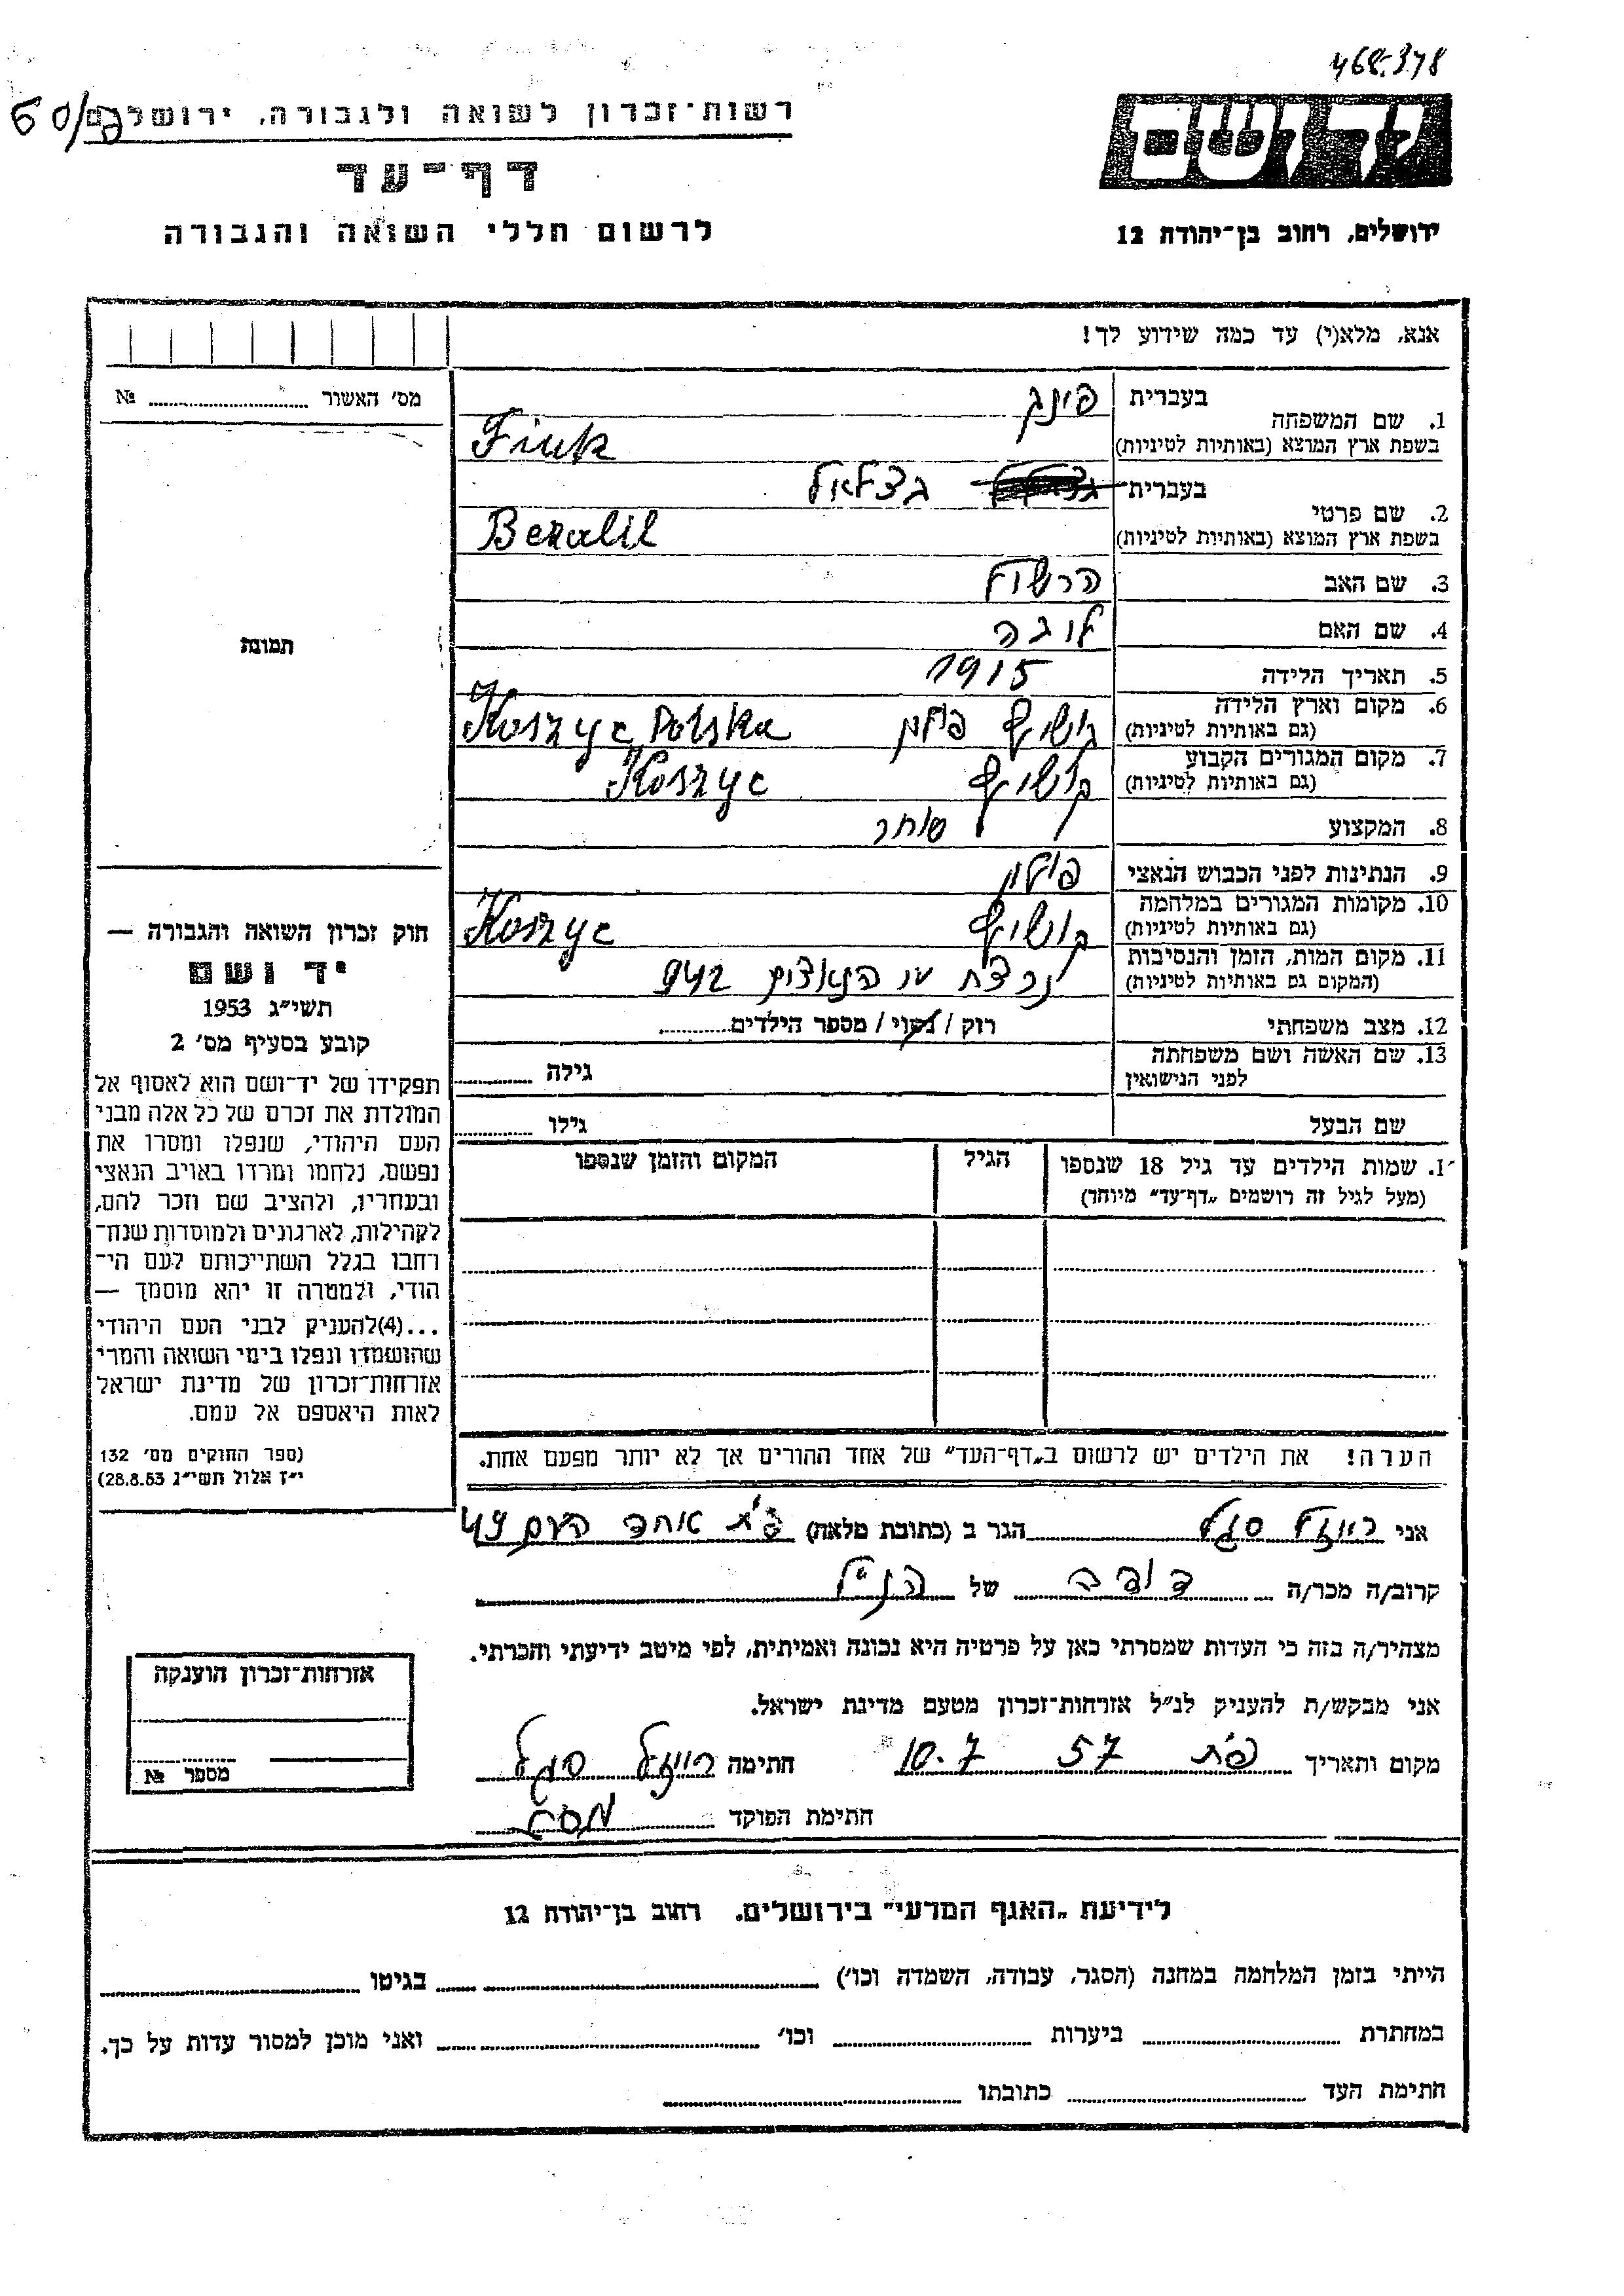 468.378
יד ושם
ירושלים, רחוב בן־יהודה 12
רשות־זכרון לשואה ולגבורה, ירושלים
60/
דף־עד
לרשום חללי השואה והגבורה
אנא, מלא(י) עד כמה שידוע לך!
מס׳ האשור № 
1. שם המשפחה בעברית פינק
בשפת ארץ המוצא (באותיות לטיניות) Fink
2. שם פרטי בעברית בצלאל
בשפת ארץ המוצא (באותיות לטיניות) Bezalil
3. שם האב הרשול
4. שם האם
5. תאריך הלידה 1915
6. מקום וארץ הלידה
(גם באותיות לטיניות) קושיץ פולין Koszyc Polska
7. מקום המגורים הקבוע
(גם באותיות לטיניות) קושיץ Koszyc
8. המקצוע סוחר
9. הנתינות לפני הכבוש הנאצי פולין
10. מקומות המגורים במלחמה
(גם באותיות לטיניות) קושיץ Koszyc
11. מקום המות, הזמן והנסיבות
(המקום גם באותיות לטיניות) נרצח הנאצים 942
12. מצב משפחתי רוק / נשוי / מספר הילדים
13. שם האשה ושם משפחתה
לפני הנישואין גילה
שם הבעל גילו
שמות הילדים עד גיל 18 שנספו הגיל המקום והזמן שנספו
(מעל לגיל זה רושמים „דף־עד” מיוחד)
הערה! את הילדים יש לרשום ב„דף־העד” של אחד ההורים אך לא יותר מפעם אחת.
תמונה
חוק זכרון השואה והגבורה —
יד ושם
תשי״ג 1953
קובע בסעיף מס׳ 2
תפקידו של יד־ושם הוא לאסוף אל
המולדת את זכרם של כל אלה מבני
העם היהודי, שנפלו ומסרו את
נפשם, נלחמו ומרדו באויב הנאצי
ובעוזריו, ולהציב שם וזכר להם,
לקהילות, לארגונים ולמוסדות שנח־
רבו בגלל השתייכותם לעם הי־
הודי, ולמטרה זו יהא מוסמך —
...(4)להעניק לבני העם היהודי
שהושמדו ונפלו בימי השואה והמרי
אזרחות־זכרון של מדינת ישראל
לאות היאספם אל עמם.
(ספר החוקים מס׳ 132
י״ז אלול תשי״ג 28.8.53)
אני סגל הגר ב (כתובת מלאה) פ״ת אחד העם 49
קרוב/ה מכר/ה דודה של הנ״ל
מצהיר/ה בזה כי העדות שמסרתי כאן על פרטיה היא נכונה ואמיתית, לפי מיטב ידיעתי והכרתי.
אני מבקש/ת להעניק לנ״ל אזרחות־זכרון מטעם מדינת ישראל.
מקום ותאריך פ״ת 57 10.7 חתימה סגל
חתימת הפוקד
אזרחות־זכרון הוענקה
מספר №
לידיעת „האגף המדעי” בירושלים. רחוב בן־יהודה 12
הייתי בזמן המלחמה במחנה (הסגר, עבודה, השמדה וכו׳) בגיטו
במחתרת ביערות וכו׳ ואני מוכן למסור עדות על כך.
חתימת העד כתובתו